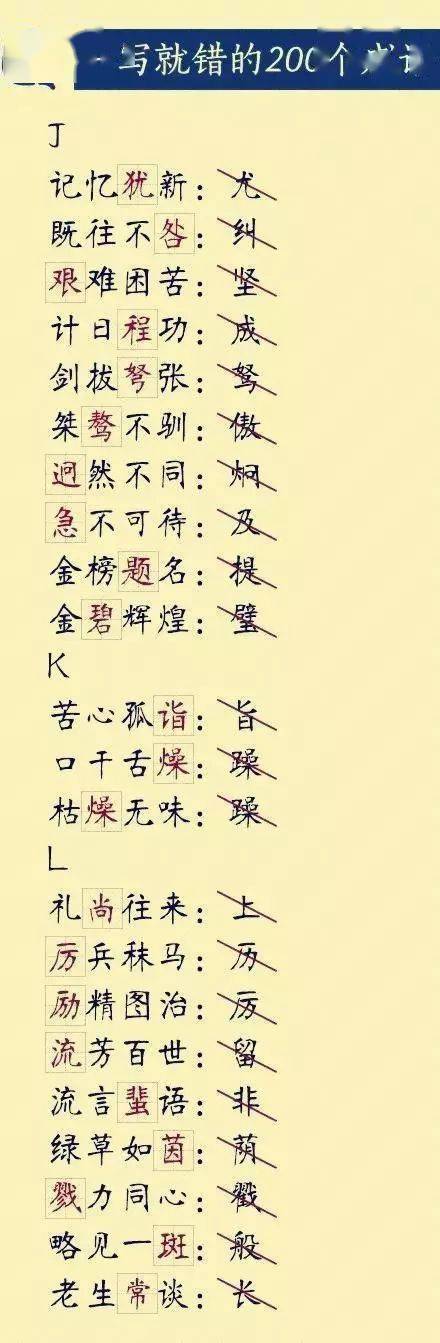 一写就错的200个成语
J
记忆犹新：尤
既往不咎：纠
艰难困苦：坚
计日程功：成
剑拔弩张：驽
桀骜不驯：傲
迥然不同：炯
急不可待：及
金榜题名：提
金碧辉煌：璧
K
苦心孤诣：旨
口干舌燥：躁
枯燥无味：躁
L
礼尚往来：上
厉兵秣马：历
励精图治：厉
流芳百世：留
流言蜚语：非
绿草如茵：荫
戮力同心：戳
略见一斑：般
老生常谈：长